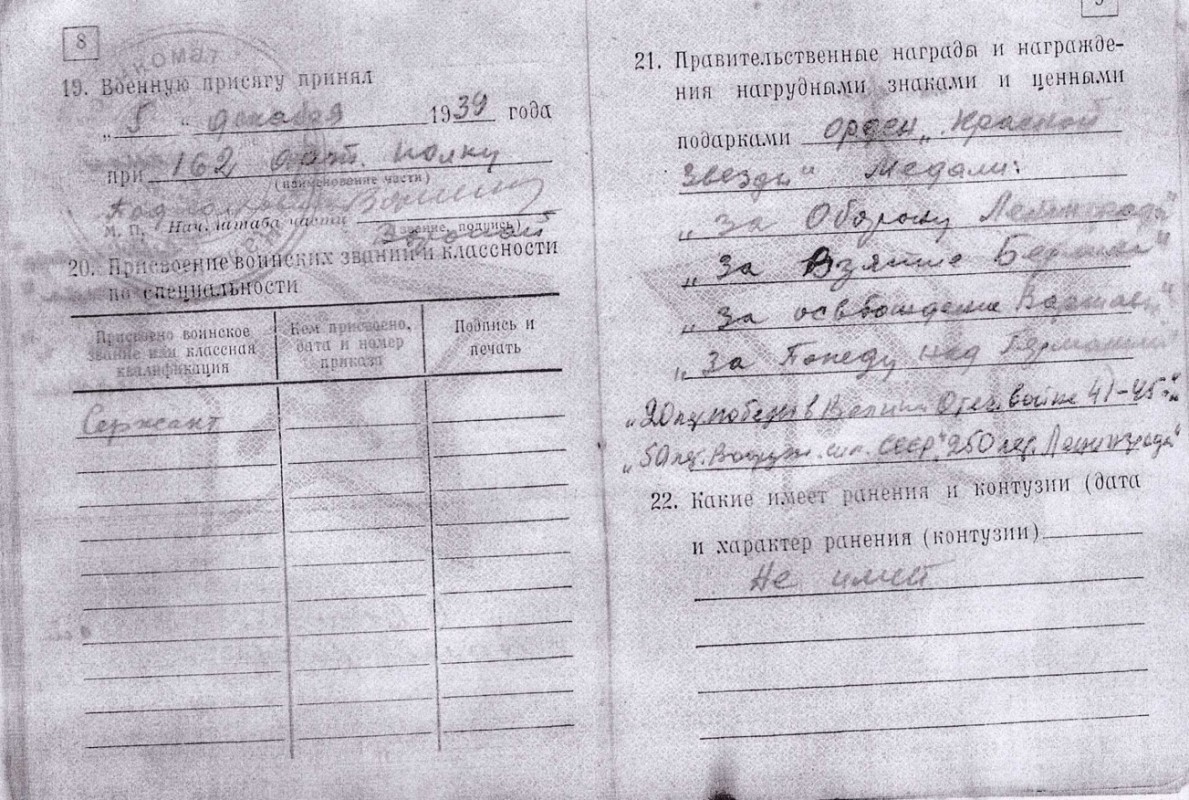 8
КОМАТ
19. Военную присягу принял
„ 5 “ декабря 1939 года
при 162 арт. полку
(наименование части)
М. П. Нач. штаба части
(звание, подпись)
20. Присвоение воинских званий и классности
по специальности
Присвоено воинское
звание или классная
квалификация
Кем присвоено,
дата и номер
приказа
Подпись и
печать
Сержант
9
21. Правительственные награды и награжде-
ния нагрудными знаками и ценными
подарками орден „Красной
Звезды“ Медали:
„За Оборону Ленинграда“
„За Взятие Берлина“
„За освобождение Варшавы“
„За Победу над Германией“
„20 лет победы в Велик. Отеч. войне 41-45 г.“
„50 лет. Вооруж. сил. СССР“, „250 лет. Ленинграда“
22. Какие имеет ранения и контузии (дата
и характер ранения (контузии)
Не имеет